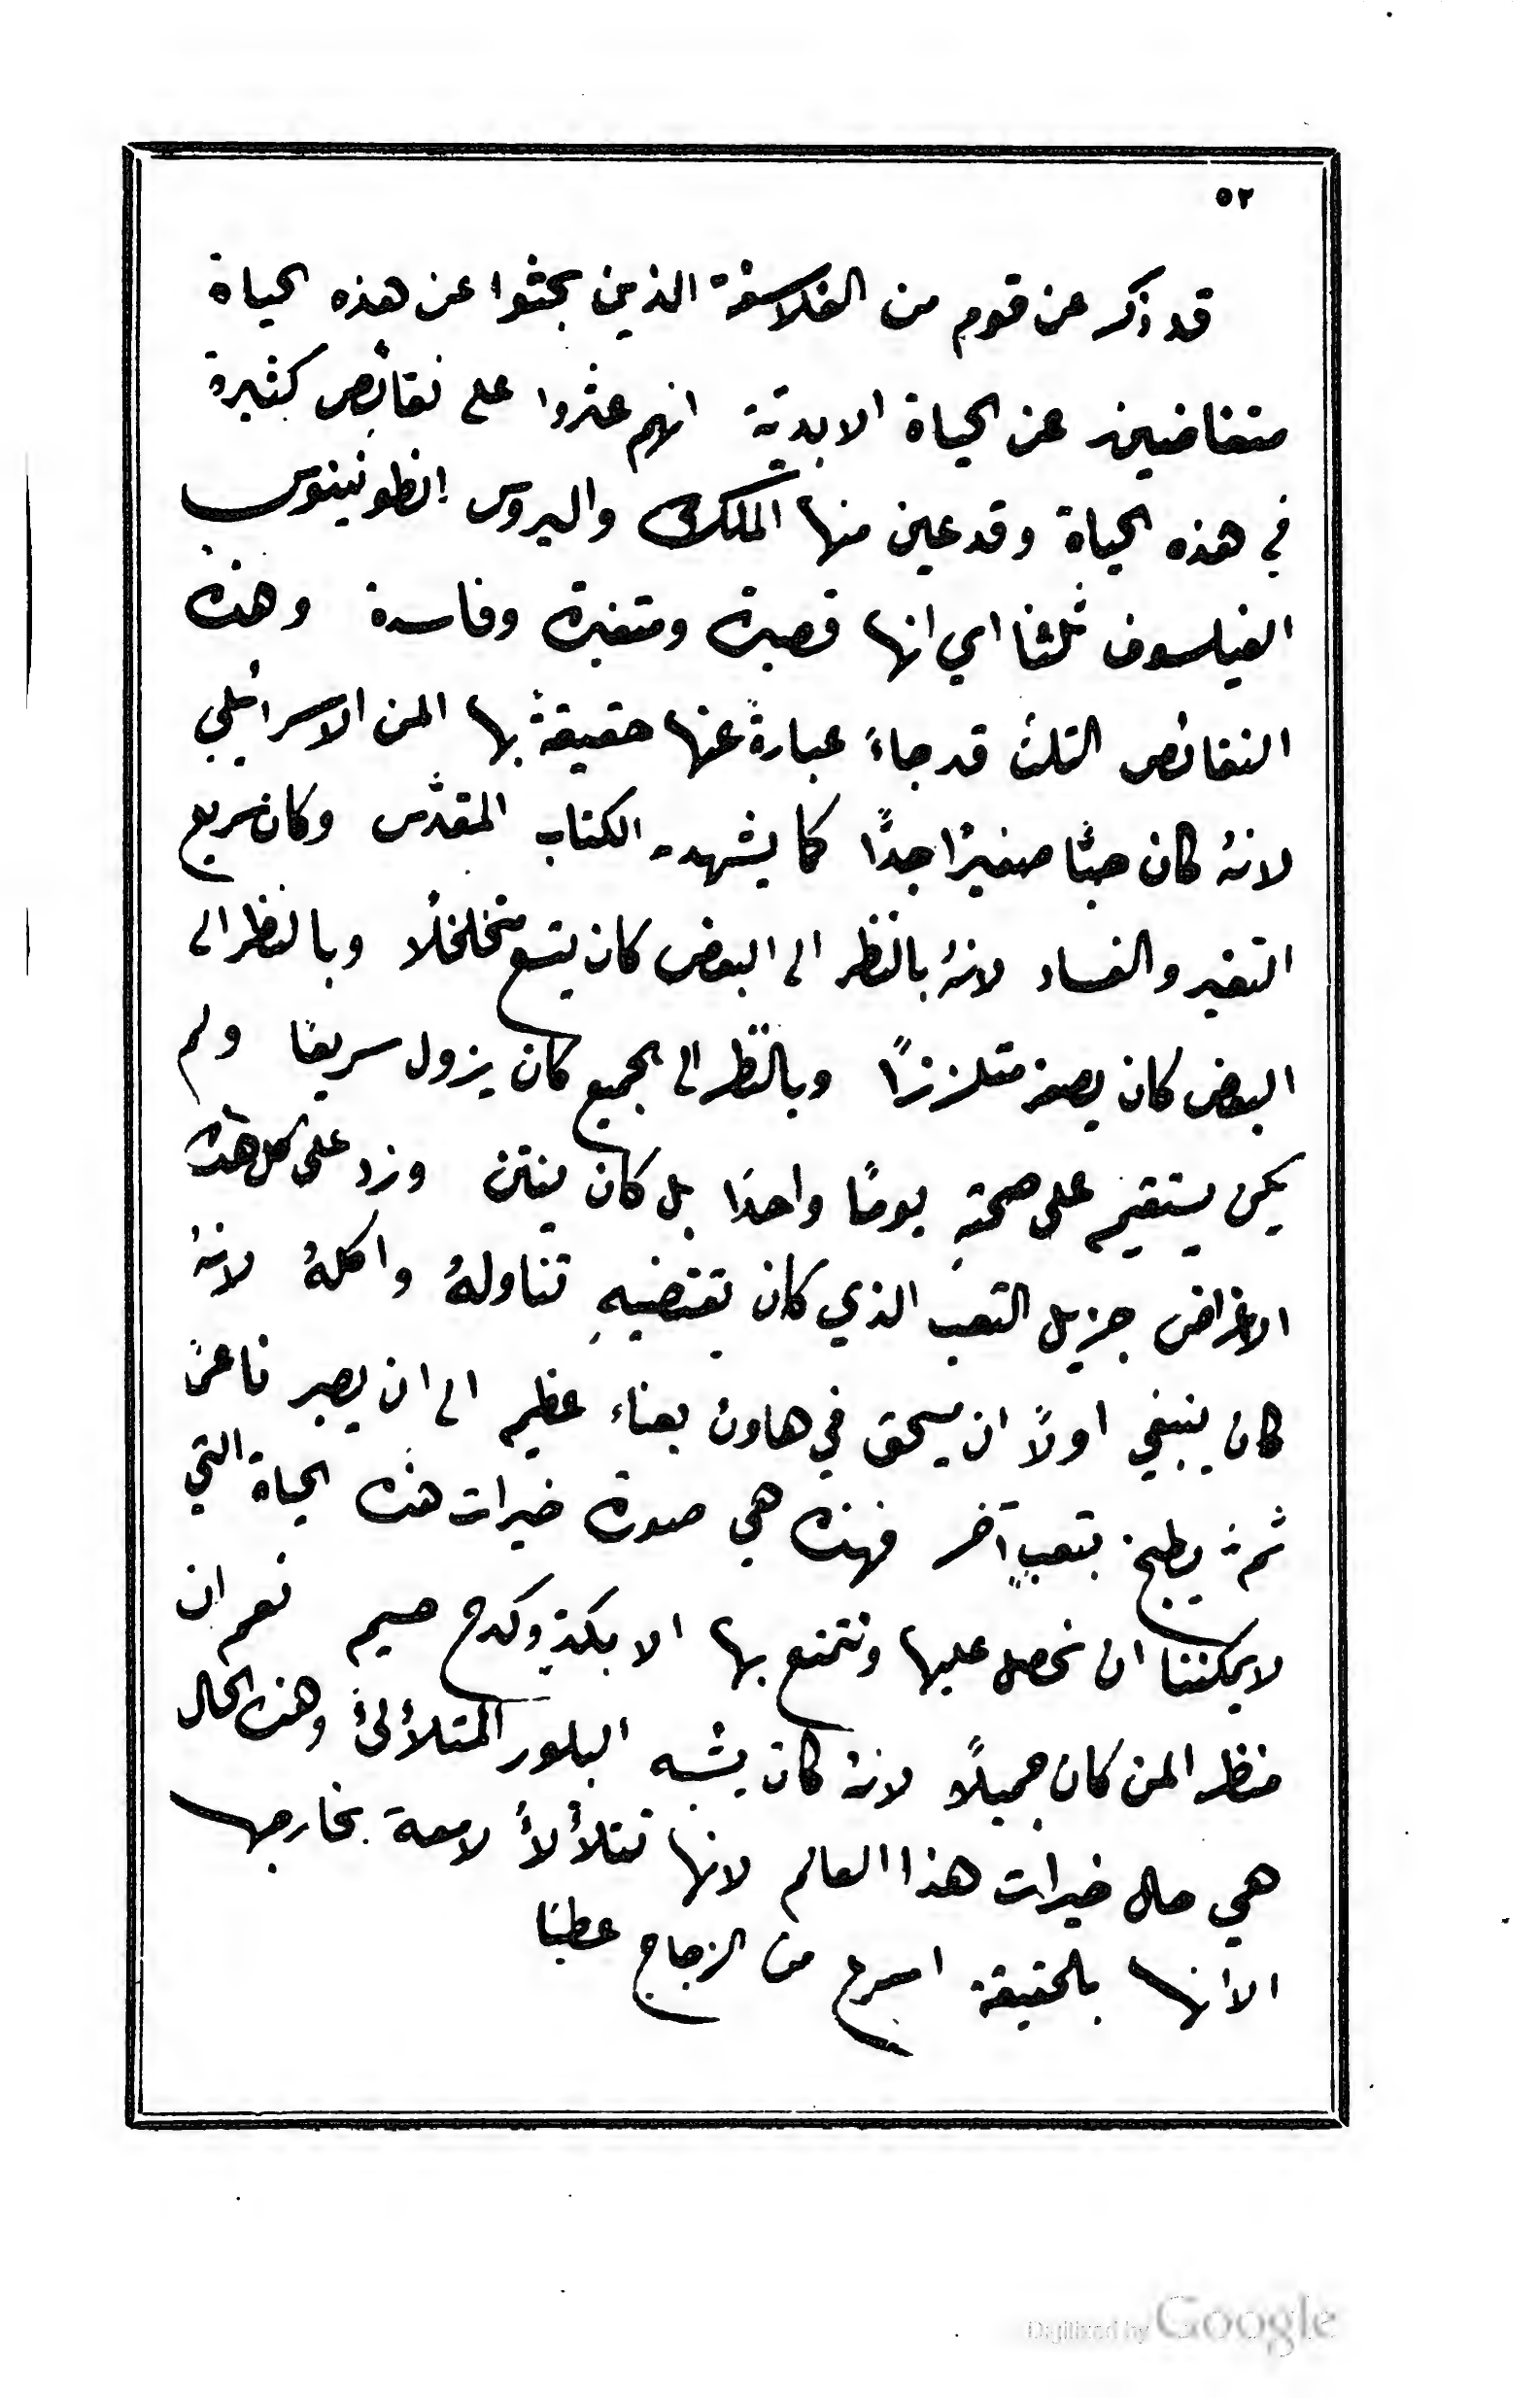 ٥٢
قد ذكر عن قوم من الفلاسفة الذين بحثوا عن هذه الحياة
متغاضين عن الحياة الابديّة انهم عثروا على نقائص كثيرة
في هذه الحياة وقد عين منها الملك واليروس انطونينوس
الفيلسوف ثلثا اي انها قصيرة ومتغيرة وفاسدة وهذه
النقائص الثلث قد جاءَ عبارةً عنها حقيقةً بها المن الاسرائيلي
لانهُ كان حبًّا صغيرًا جدًّا كما يشهد الكتاب المقدّس وكان سريع
التغير والفساد لانهُ بالنّظر الى البعض كان يتسع متخلخلًا وبالنظر الى
البعض كان يصغر متلززًا وبالنّظر الى الجميع كان يزول سريعًا ولم
يكن يستقيم على صحتهِ يومًا واحدًا بل كان ينتن وزد على كل هذه
الاغراض جزيل التعب الذي كان يقتضيهِ تناولهُ واكلهُ لانهُ
كان ينبغي اولًا ان يسحق في هاون بعناء عظيم الى ان يصير ناعمًا
ثمّ يطبخ بتعبٍ آخر فهذه هي صورة خيرات هذه الحياة التي
لا يمكننا ان نحصل عليها ونتمتع بها الا بكدٍ وكدح جسيم نعم ان
منظر المن كان جميلًا لانهُ كان يشبه البلور المتلألئُ وهذه الحال
هي حال خيرات هذا العالم لانها تتلألأُ لامعة بخارجها
الا انها بالحقيقة اسرع من الزجاج عطبًا
Digitized by Google